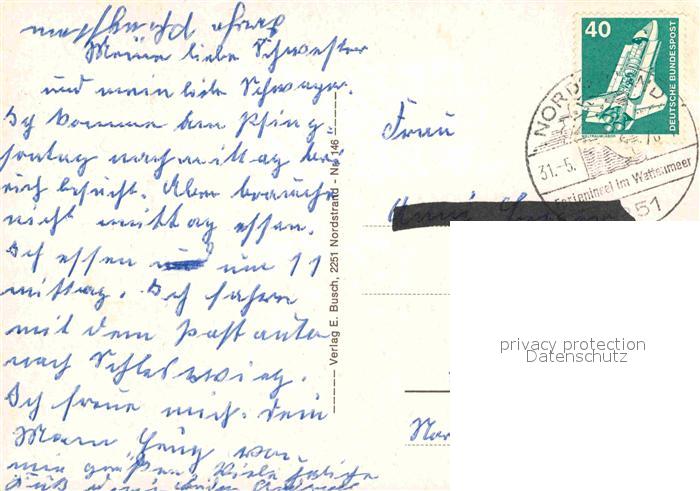 Meine liebe Schwester
und mein liebe Schwager.
Ich komme am Pfing-
sonntag nachmittag bei
besucht. Aber brauche
nicht mittag essen.
Ich essen um 11
mittag. Ich fahre
mit dem Postauto
nach Schleswig.
Ich freue mich. Dein
Mann
Viele
Verlag E. Busch, 2251 Nordstrand - Nr. 146
Frau
40
DEUTSCHE BUNDESPOST
NORDS
31.-5.
Ferieninsel im Wattenmeer
2251
Nor
privacy protection
Datenschutz